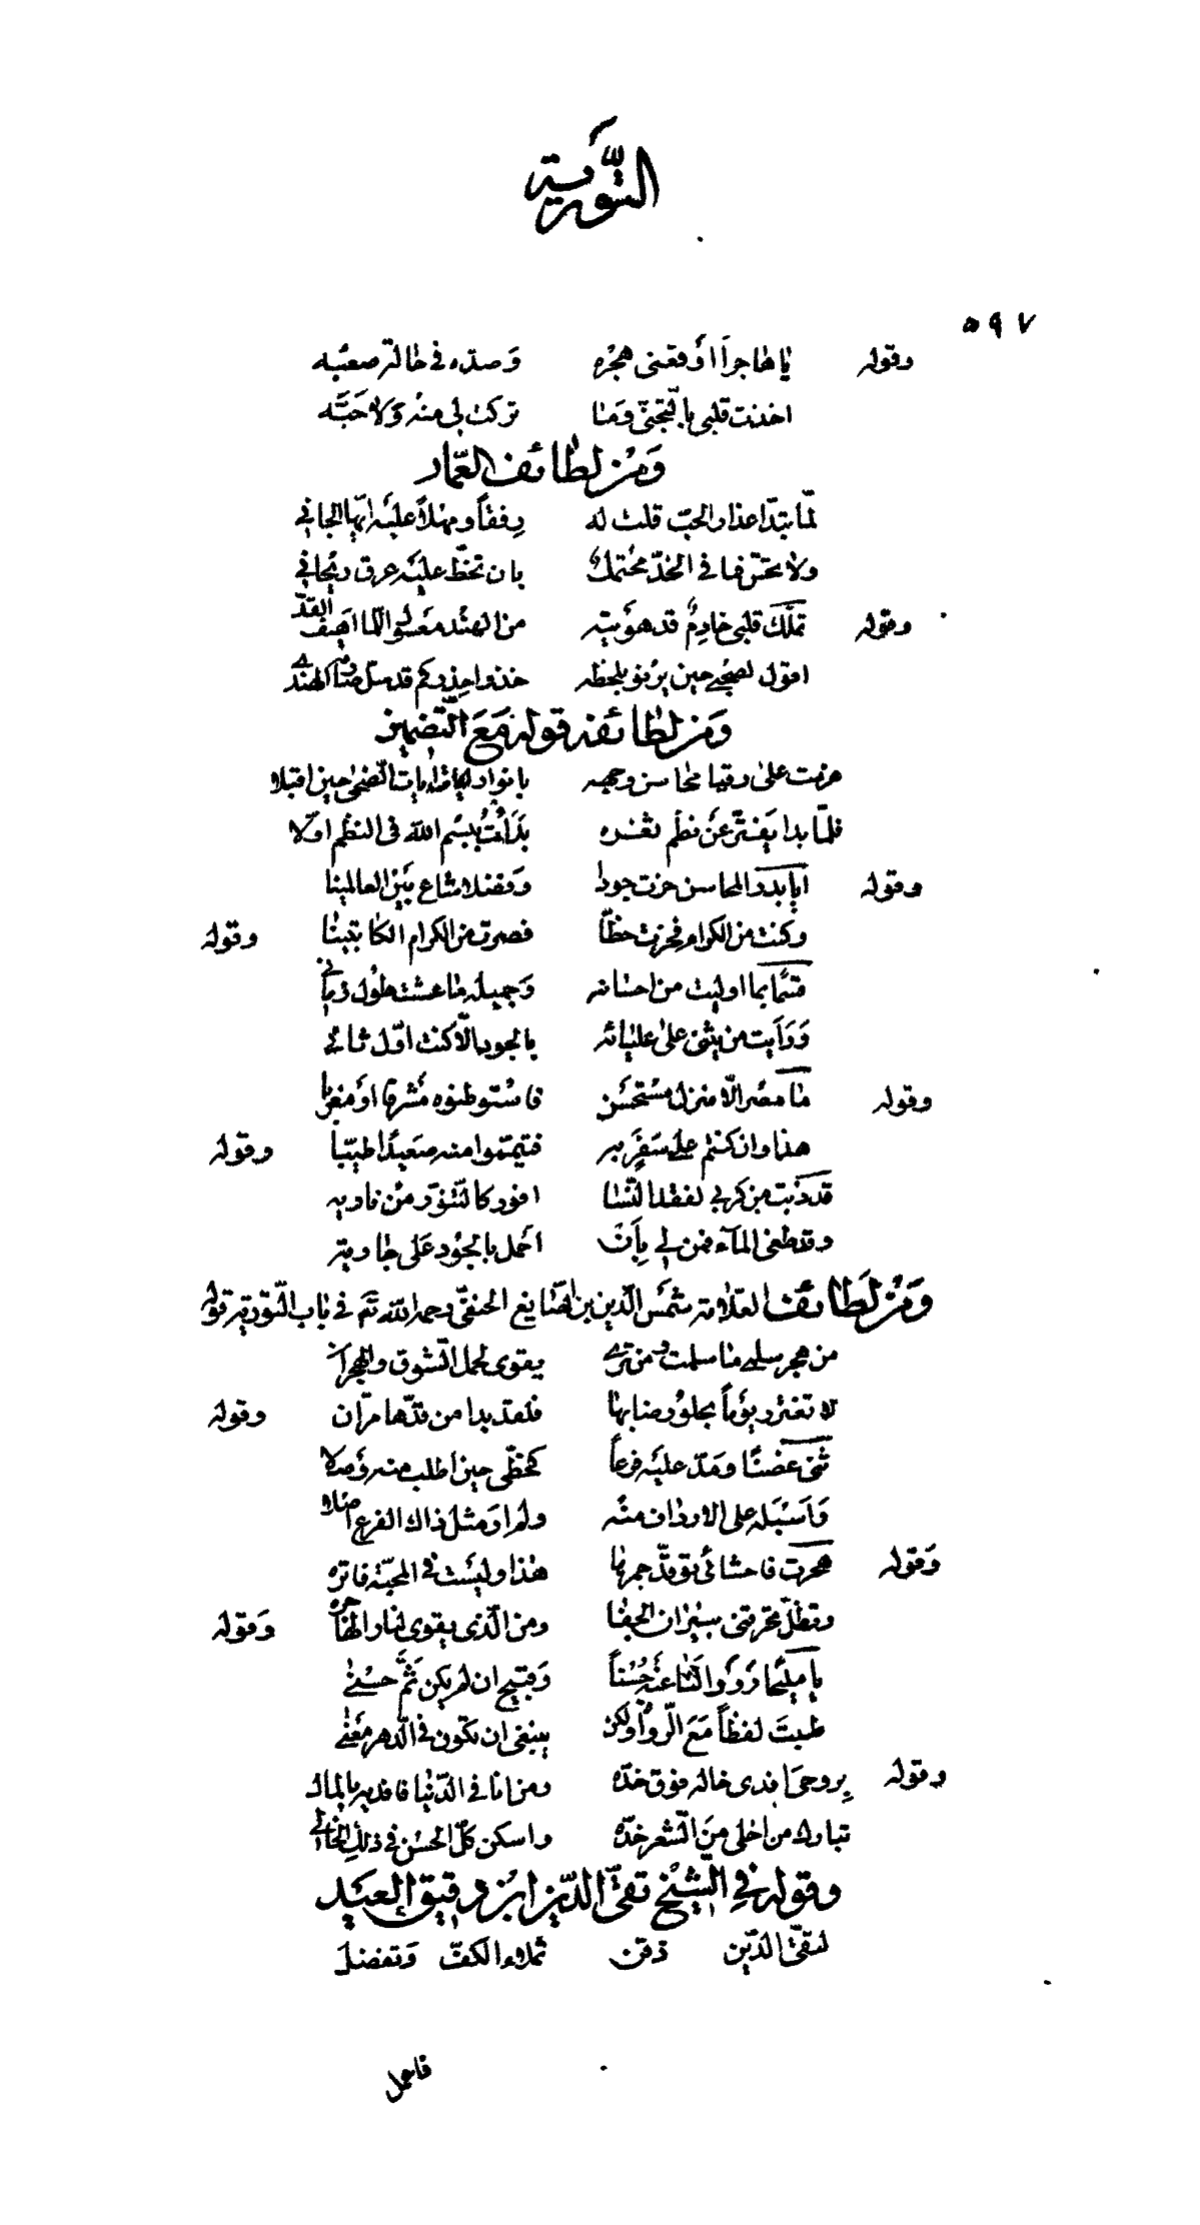 التورية
٥٩٧
وقوله يا هاجرا اوقعنى هجره وصده فى حالة صعبه
اخذت قلبى بالتجنى وما تركت لى منه ولا حبه
ومن لطائف العمار
لما تبدا عذار الحب قلت له رفقا ومهلا عليه ايها الجانى
ولا تحز فى الخد محتمك بان تخط عليه عرق ريحانى
وقوله تملك قلبى خادم قد هويته من الهند معسول اللما اهيف القد
اقول لصحبى حين يرنو بلحظه خذوا حذركم قد سل صارمه الهندى
ومن لطائفه قوله مع التضمين
عزمت على رقيا محاسن وجهه بانوار ايات الضحى حين اقبلا
فلما بدا يفتر عن نظم ثغره بدأت ببسم الله فى النظم اولا
وقوله ايا بدر المحاسن حزت جودا وفضلا شاع بين العالمينا
وكنت من الكرام فحزت خطا فصرت من الكرام الكاتبينا وقوله
قسما بما اوليت من احسانه وجميله ما عشت طول زمانى
ورايت من يثنى على عليائه بالجود الا كنت اول ثانى
وقوله ما مصر الا منزل مستحسن فاستوطنوه مشرقا او مغربا
هذا وان كنتم على سفر به فتيمموا منه صعيدا طيبا وقوله
قد ذبت من كربى لفقد النسا افور كالتنور من ناديه
وقد طغى الماء فمن لى بأن احمل بالجود على جاريه
ومن لطائف العلامة شمس الدين بن الصايغ الحنفى رحمه الله تع فى باب التورية قوله
من هجر سلمى ما سلمت ومن ترى يقوى لحمل الشوق والهجران
لا تغترر يوما بحلو رضابها فلقد بدا من قدها مران وقوله
ثنى غصنا ومد عليه فرعا كحظى حين اطلب منه وصلا
واسبله على الارداف منه ولم ار مثل ذاك الفرع اصلا
وقوله هجرت فاحشائى توقد جمرها هذا وليست فى المحبة فاتره
وتظل تحرقنى بنيران الجفا ومن الذى يقوى لنار الهاجره وقوله
يا مليحا رووا لنا عنه حسنا وقبيح ان لم يكن ثم حسنى
طبت لفظا مع الرواء ولكن ينبغى ان تكون فى الدهر معنى
وقوله بروحى افدى خاله فوق خده ومن انا فى الدنيا فافديه بالمال
تبارك من اخلى من الشعر خده واسكن كل الحسن فى ذلك الخالى
وقوله فى الشيخ تقى الدين ابن دقيق العيد
لتقى الدين ذقن تملاء الكف وتفضل